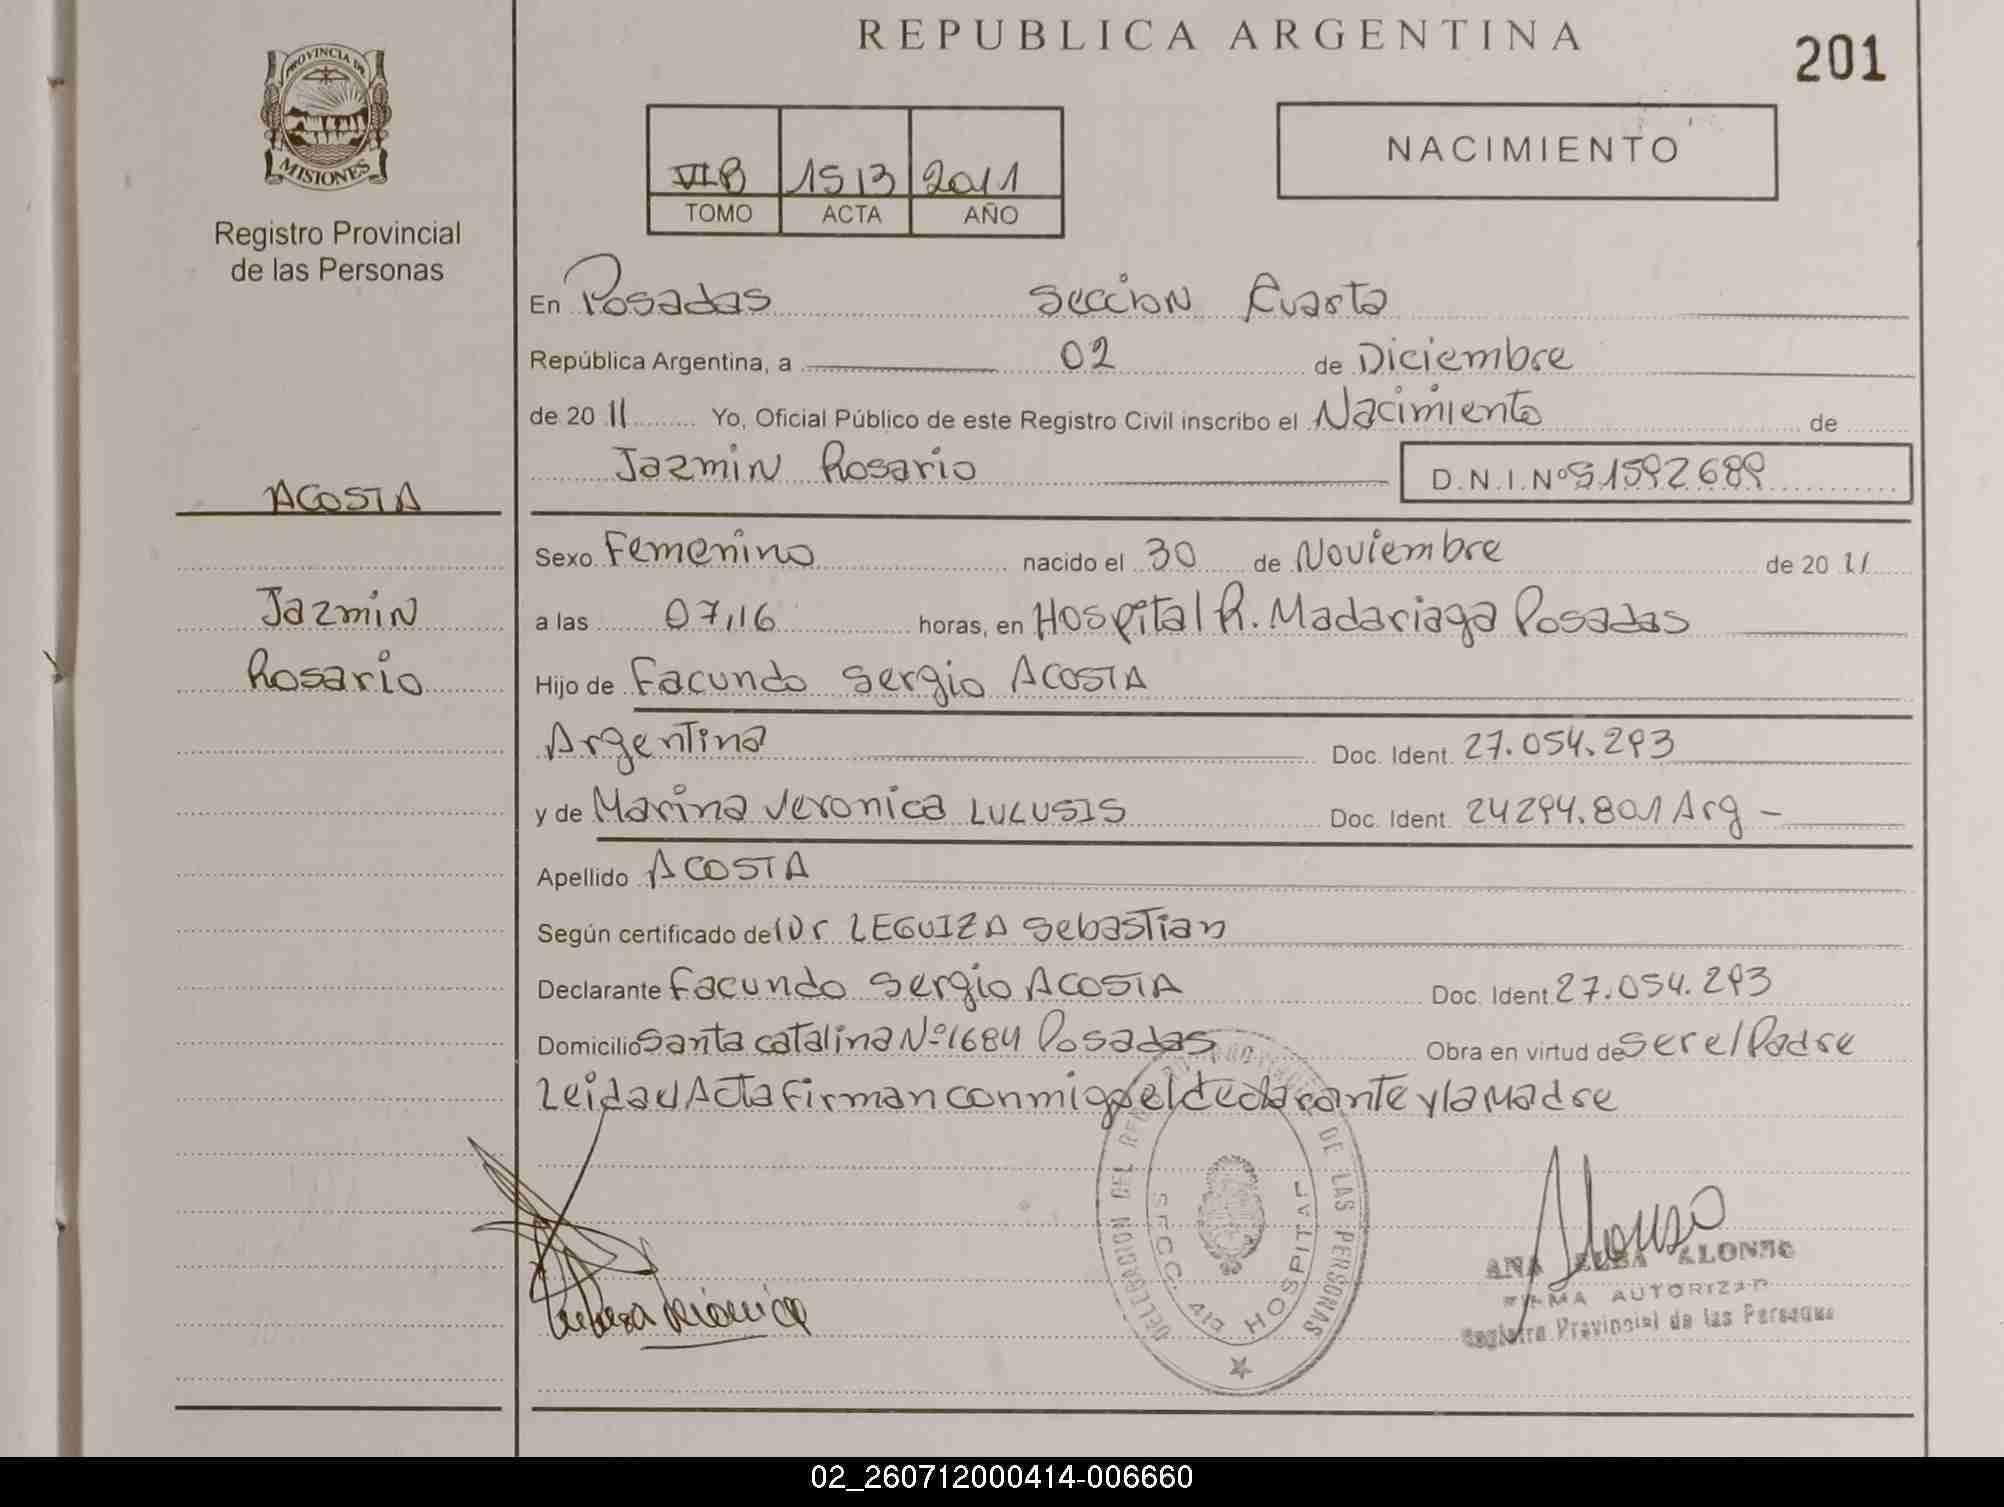 REPUBLICA ARGENTINA
201
PROVINCIA DE
MISIONES
Registro Provincial
de las Personas
VI B 1513 2011
TOMO ACTA AÑO
NACIMIENTO
En Posadas Seccion Cuarta
República Argentina, a 02 de Diciembre
de 20 11 Yo, Oficial Público de este Registro Civil inscribo el Nacimiento de
Jazmin Rosario D.N.I. Nº 51592689
ACOSTA
Jazmin
Rosario
Sexo Femenino nacido el 30 de Noviembre de 20 11
a las 07,16 horas, en Hospital R. Madariaga Posadas
Hijo de Facundo Sergio ACOSTA
Argentina Doc. Ident. 27.054.293
y de Marina Veronica LUCUSIS Doc. Ident. 24294.801 Arg -
Apellido ACOSTA
Según certificado del Dr LEGUIZA Sebastian
Declarante Facundo Sergio ACOSTA Doc. Ident. 27.054.293
Domicilio Santa Catalina Nº 1684 Posadas Obra en virtud de Ser el Padre
Leida el Acta firman conmigo el declarante y la Madre
DELEGACION DEL DE LAS PERSONAS
SECC. 4ta HOSPITAL
Alonso
ANA ELBA ALONSO
FIRMA AUTORIZAD
Registro Provincial de las Personas
02_260712000414-006660